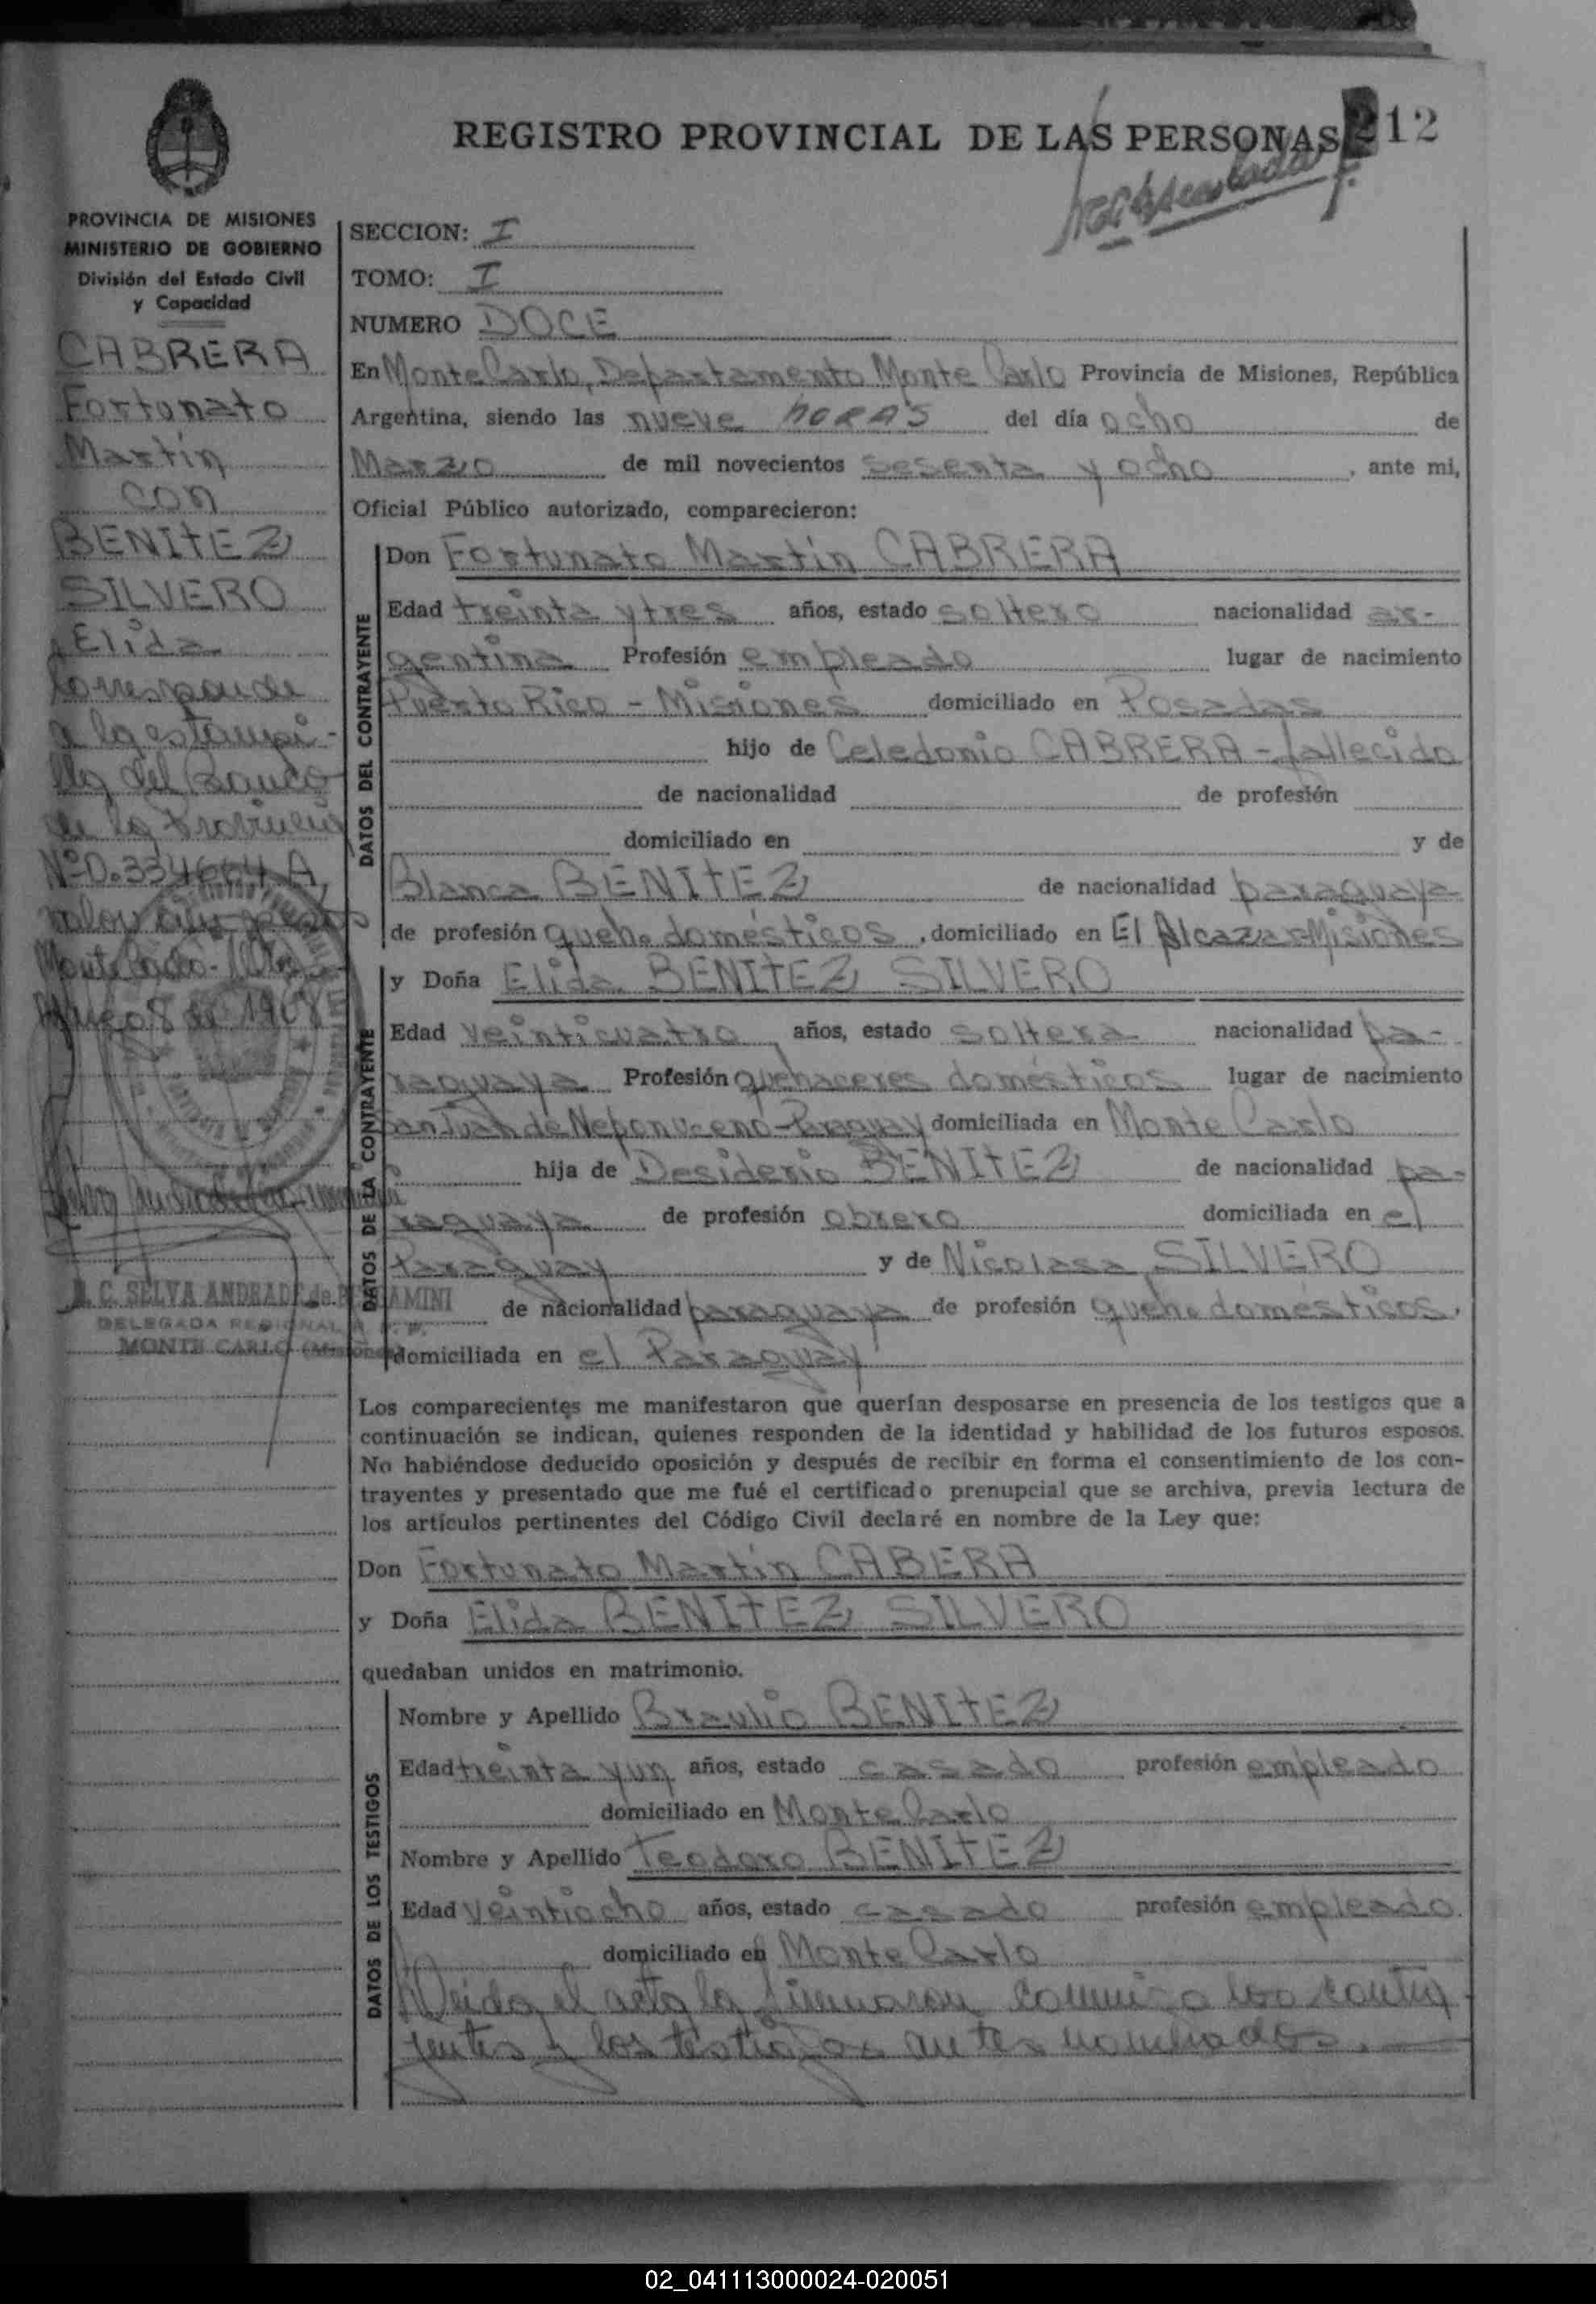 REGISTRO PROVINCIAL DE LAS PERSONAS 12
PROVINCIA DE MISIONES
MINISTERIO DE GOBIERNO
División del Estado Civil
y Capacidad
CABRERA
Fortunato
Martín
con
BENITEZ
SILVERO
Elida
Corresponde
a la estampi-
lla del Banco
de la Provincia
Nº0.334664 A
valor
Monte Carlo-
8 de 1968
C. SELVA ANDRADE de
DELEGADA REGIONAL
MONTE CARLO (Misiones)
SECCION: I
TOMO: I
NUMERO DOCE
En Monte Carlo, Departamento Monte Carlo Provincia de Misiones, República
Argentina, siendo las nueve horas del día ocho de
Marzo de mil novecientos sesenta y ocho, ante mi,
Oficial Público autorizado, comparecieron:
DATOS DEL CONTRAYENTE
Don Fortunato Martín CABRERA
Edad treinta y tres años, estado soltero nacionalidad ar-
gentina Profesión empleado lugar de nacimiento
Puerto Rico - Misiones domiciliado en Posadas
hijo de Celedonio CABRERA - fallecido
de nacionalidad de profesión
domiciliado en y de
Blanca BENITEZ de nacionalidad paraguaya
de profesión queh. domésticos, domiciliado en El Alcazar Misiones
DATOS DE LA CONTRAYENTE
y Doña Elida BENITEZ SILVERO
Edad veinticuatro años, estado soltera nacionalidad pa-
raguaya Profesión quehaceres domésticos lugar de nacimiento
San Juan de Neponuceno-Paraguay domiciliada en Monte Carlo
hija de Desiderio BENITEZ de nacionalidad pa-
raguaya de profesión obrero domiciliada en el
Paraguay y de Nicolasa SILVERO
de nacionalidad paraguaya de profesión queh. domésticos,
domiciliada en el Paraguay
Los comparecientes me manifestaron que querían desposarse en presencia de los testigos que a
continuación se indican, quienes responden de la identidad y habilidad de los futuros esposos.
No habiéndose deducido oposición y después de recibir en forma el consentimiento de los con-
trayentes y presentado que me fué el certificado prenupcial que se archiva, previa lectura de
los artículos pertinentes del Código Civil declaré en nombre de la Ley que:
Don Fortunato Martín CABERA
y Doña Elida BENITEZ SILVERO
quedaban unidos en matrimonio.
DATOS DE LOS TESTIGOS
Nombre y Apellido Braulio BENITEZ
Edad treinta y un años, estado casado profesión empleado
domiciliado en Monte Carlo
Nombre y Apellido Teodoro BENITEZ
Edad veintiocho años, estado casado profesión empleado.
domiciliado en Monte Carlo
el acta la firmaron conmigo los contra
yentes y los testigos antes nombrados.
02_041113000024-020051